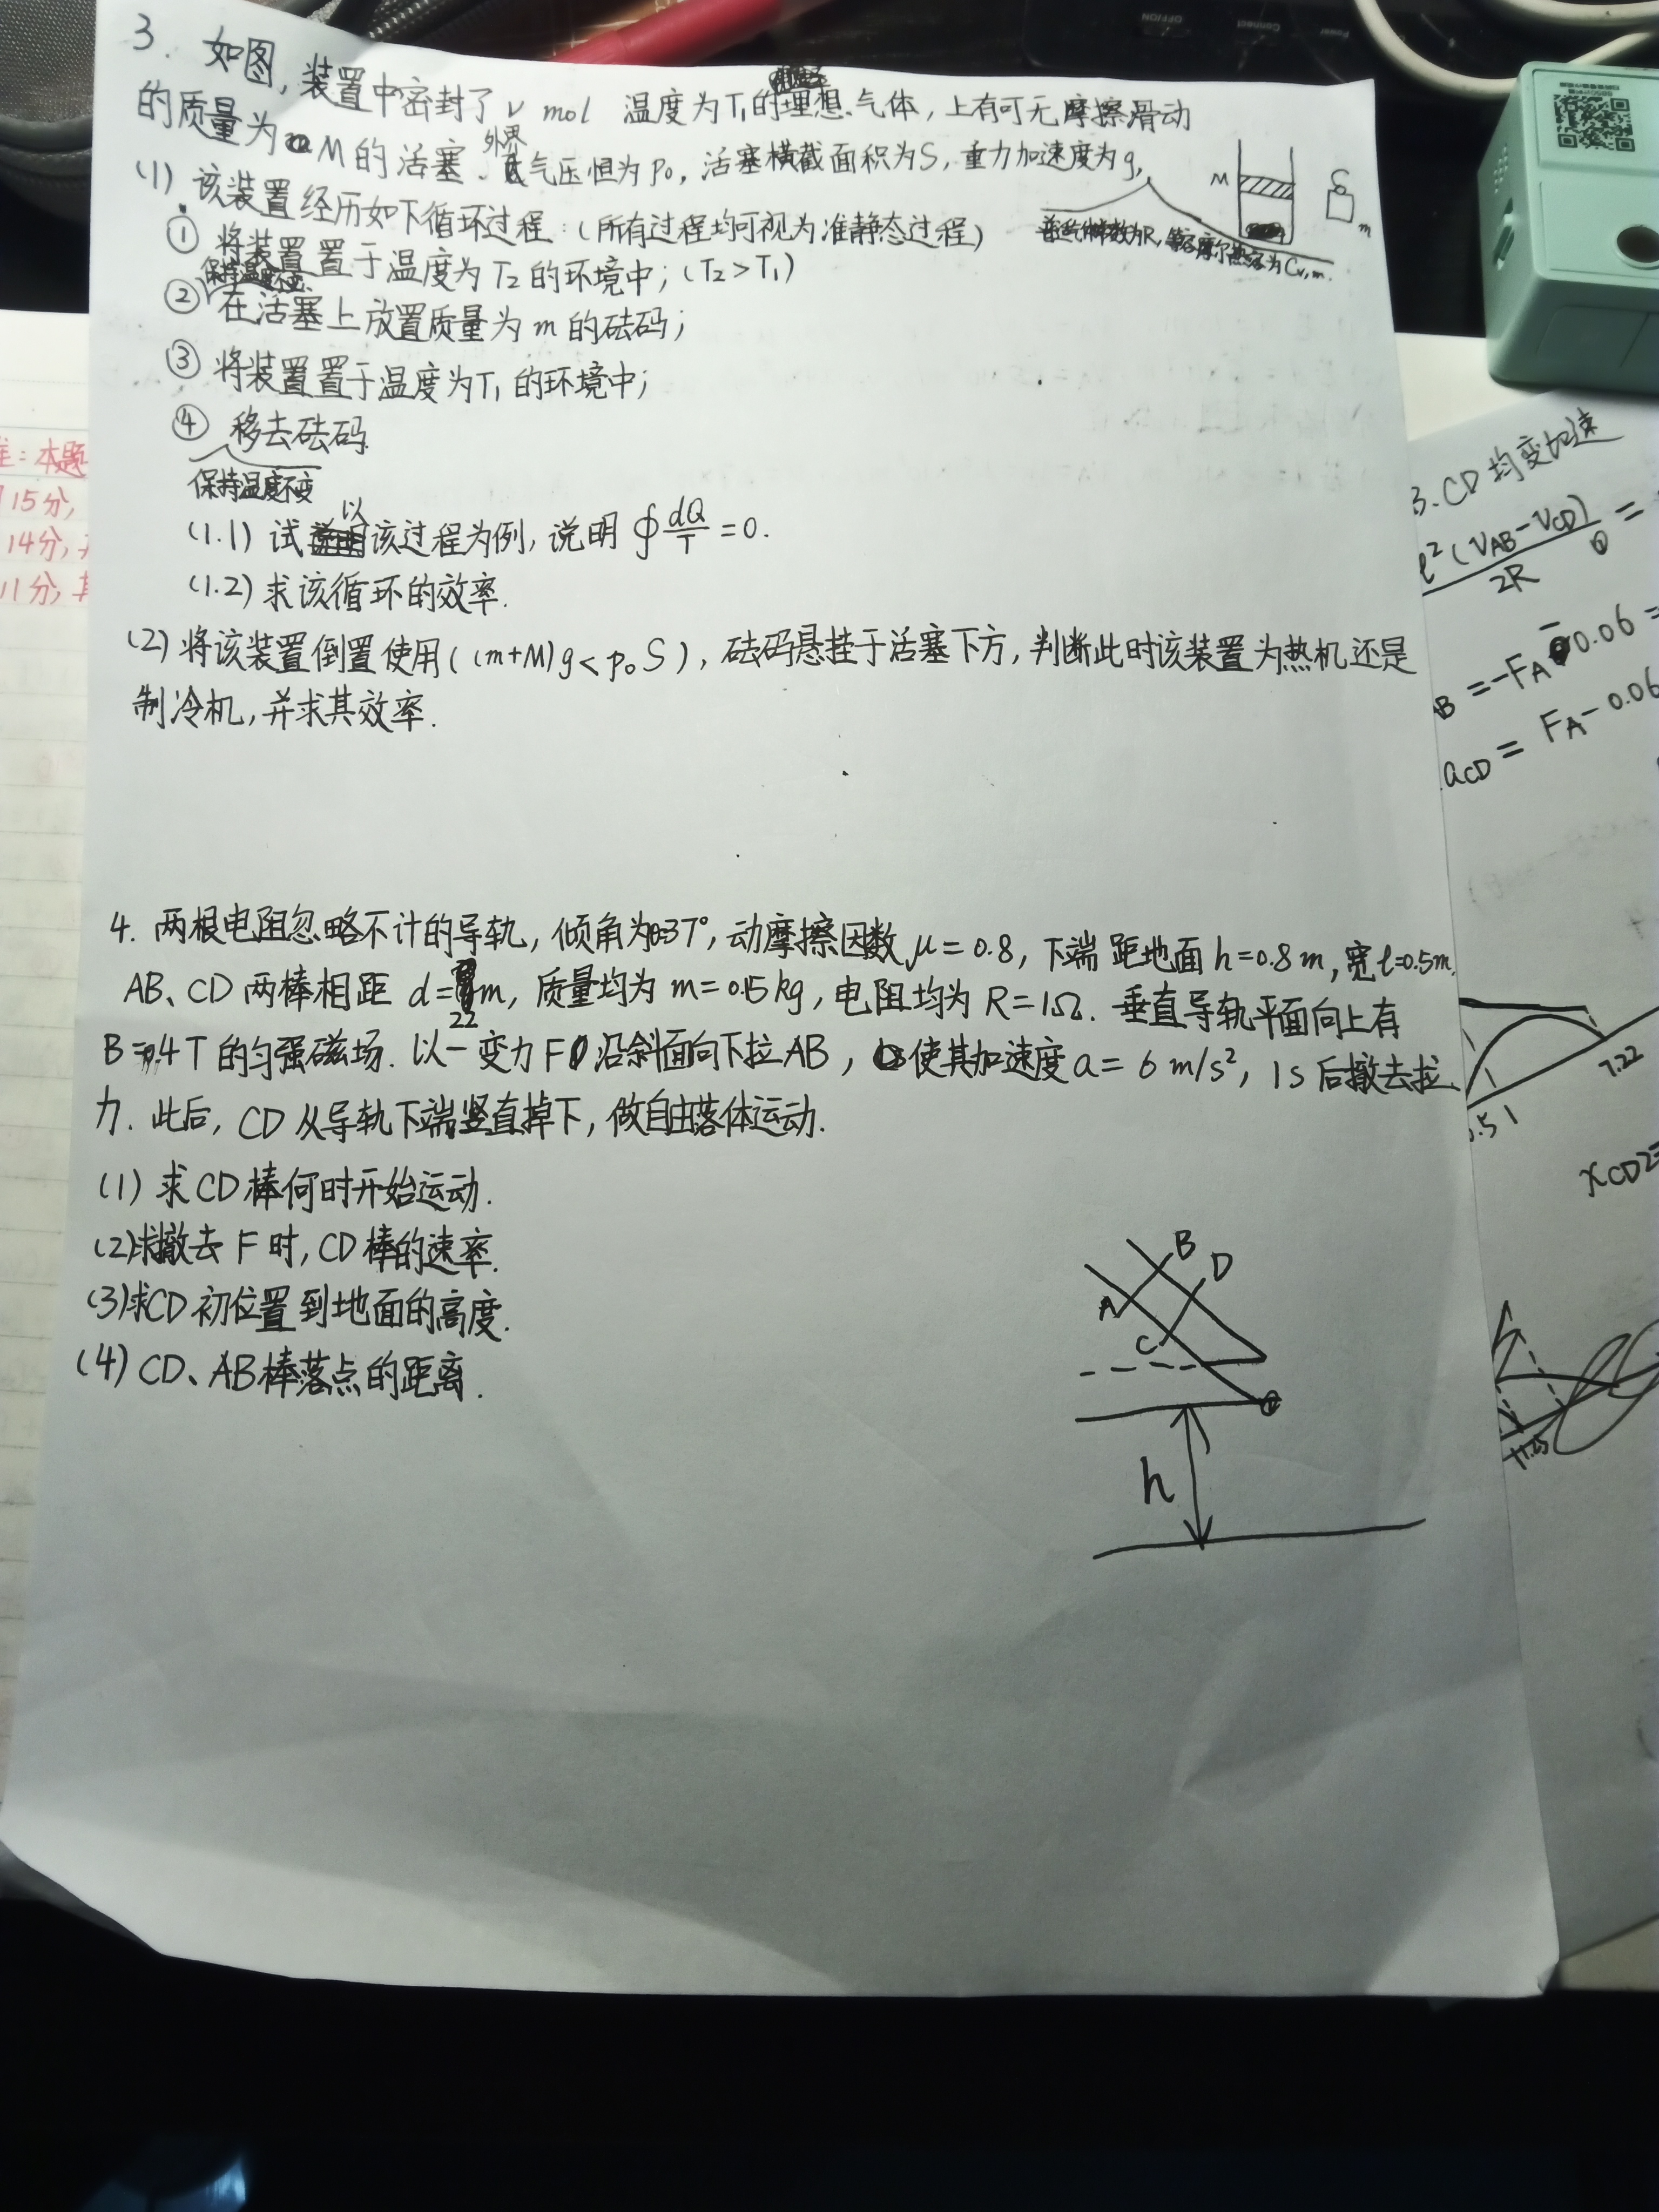 3. 如图,装置中密封了 ν mol 温度为T₁的理想气体,上有可无摩擦滑动
的质量为M的活塞.外界气压恒为p₀,活塞横截面积为S,重力加速度为g,
普适气体常数为R,等容摩尔热容为Cv,m.
M
m
(1) 该装置经历如下循环过程:(所有过程均可视为准静态过程)
① 将装置置于温度为T₂的环境中;(T₂>T₁)
② 保持温度不变 在活塞上放置质量为m的砝码;
③ 将装置置于温度为T₁的环境中;
④ 移去砝码.
保持温度不变
(1.1) 试以该过程为例,说明 ∮dQ/T=0.
(1.2) 求该循环的效率.
(2) 将该装置倒置使用((m+M)g<p₀S),砝码悬挂于活塞下方,判断此时该装置为热机还是
制冷机,并求其效率.
4. 两根电阻忽略不计的导轨,倾角为37°,动摩擦因数μ=0.8,下端距地面h=0.8m,宽l=0.5m.
AB、CD两棒相距 d=22m,质量均为m=0.15kg,电阻均为R=1Ω.垂直导轨平面向上有
B=0.4T的匀强磁场.以一变力F沿斜面向下拉AB,使其加速度a=6m/s²,1s后撤去拉
力.此后,CD从导轨下端竖直掉下,做自由落体运动.
(1) 求CD棒何时开始运动.
(2)求撤去F时,CD棒的速率.
(3)求CD初位置到地面的高度.
(4) CD、AB棒落点的距离.
A
B
C
D
h
注:本题
15分,
14分,
11分,其
3. CD均变加速
l²(VAB-VCD)/2R =
B=-FA-0.06=
aCD= FA-0.06
7.22
.51
xCD2=
OFF/ON
Connect
Power